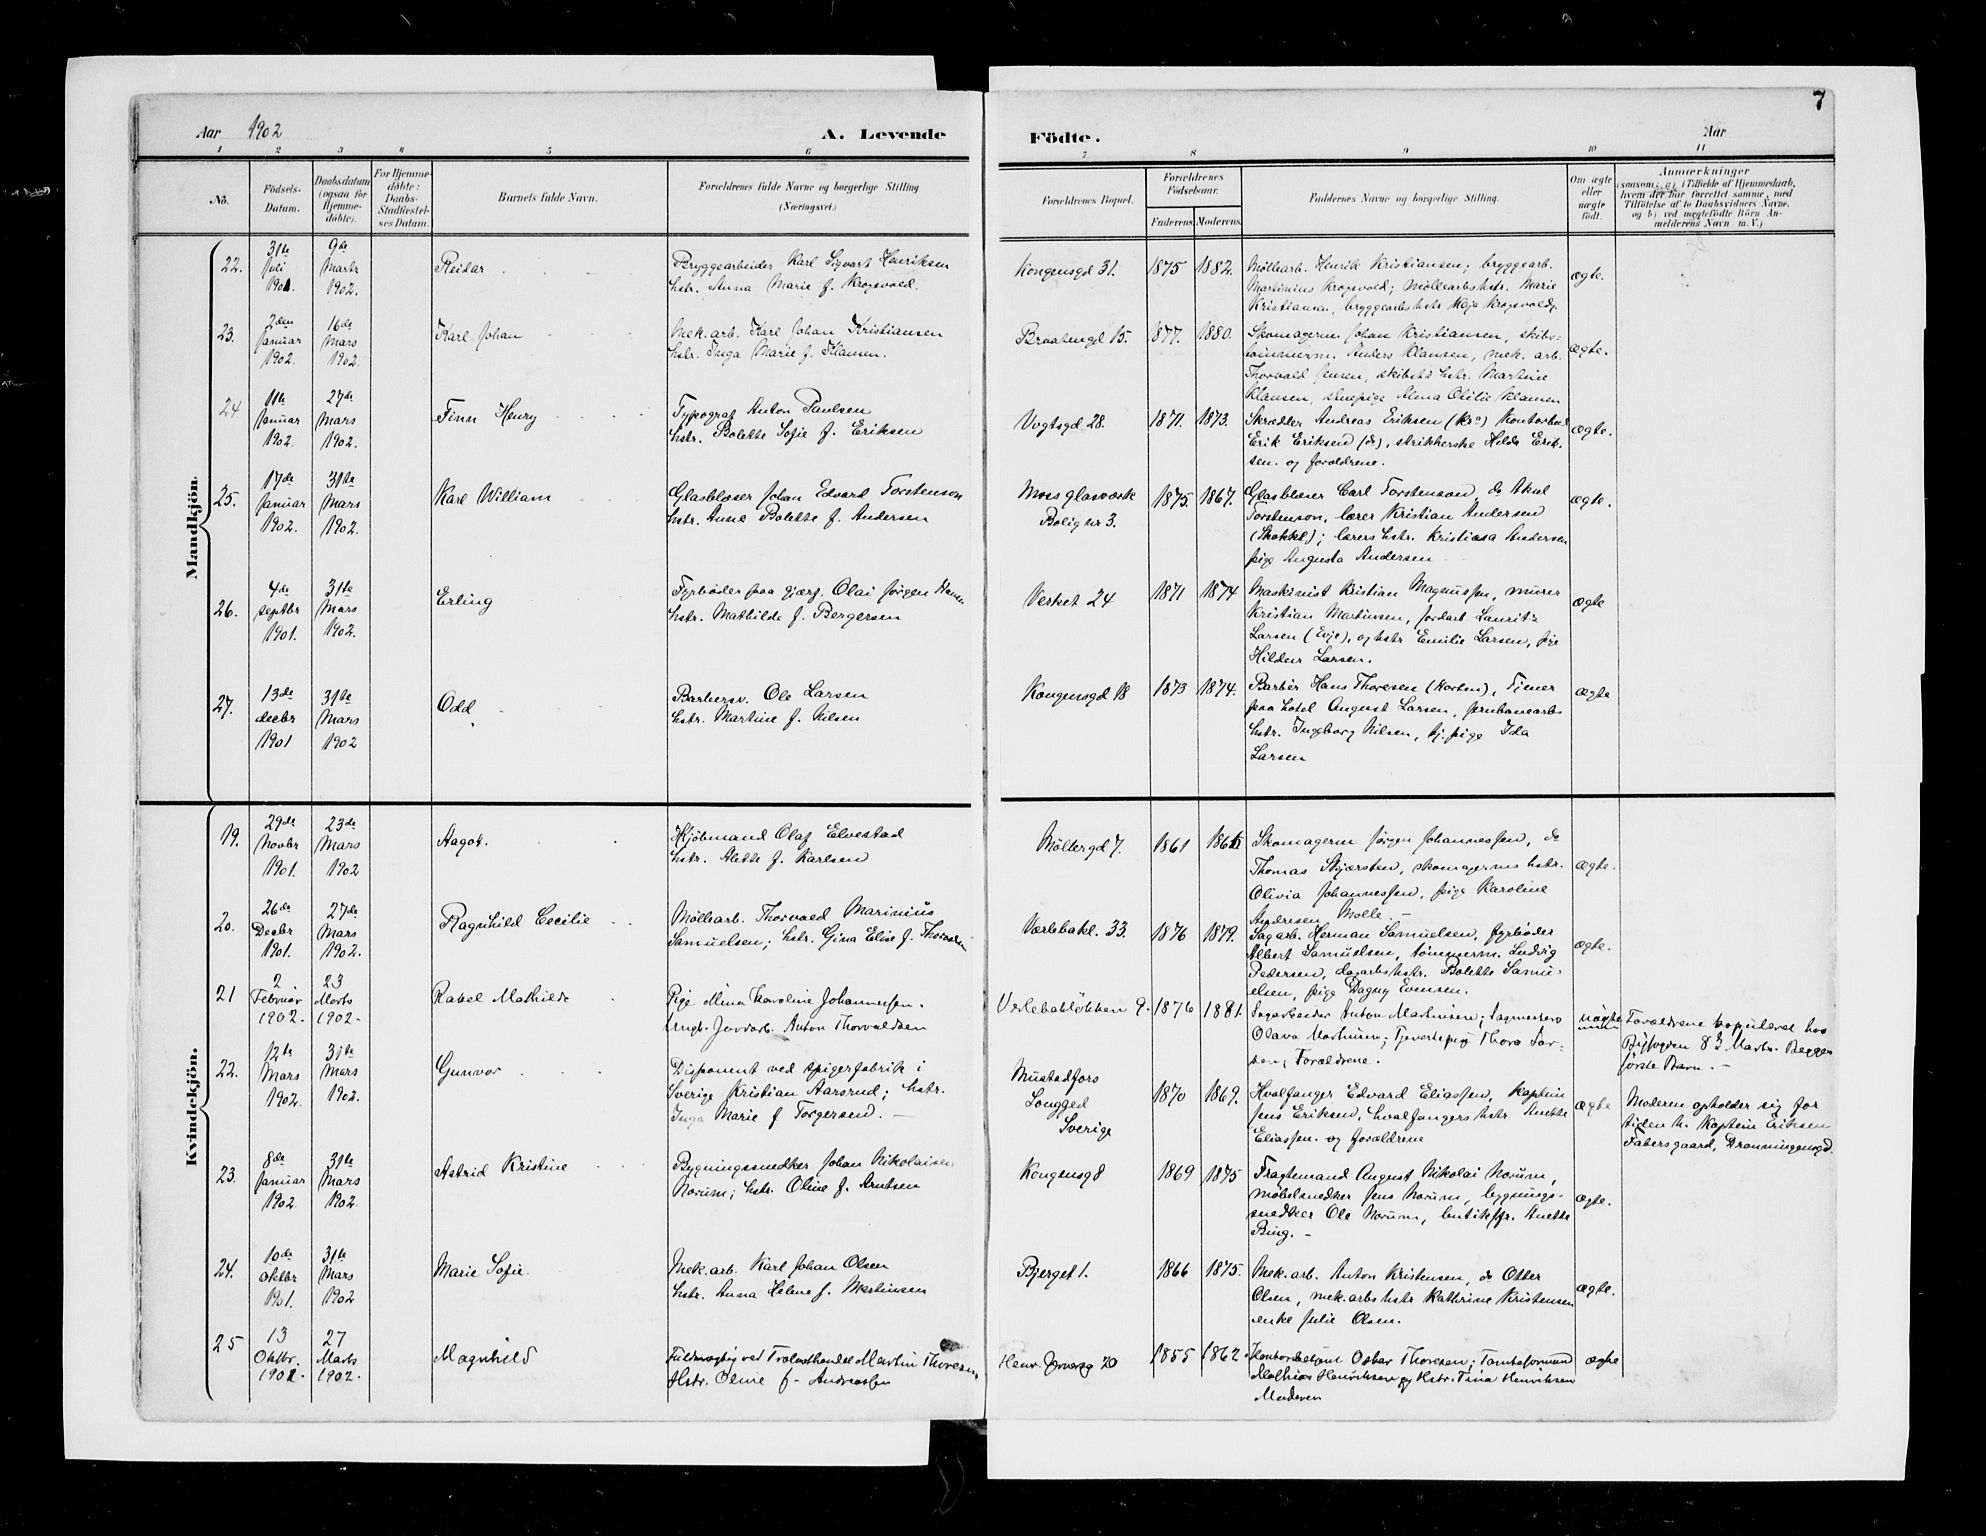 7
Aar 1902
A. Levende
Födte.
Aar
1 2 3 4 5 6 7 8 9 10 11
No.
Födsels-
Datum.
Daabsdatum
(ogsaa for
Hjemme-
döbte).
For Hjemme-
döbte:
Daabs-
Stadfæstel-
ses Datum.
Barnets fulde Navn.
Forældrenes fulde Navne og borgerlige Stilling
(Næringsvei.)
Forældrenes Bopæl.
Forældrenes
Födselsaar.
Faderens
Moderens
Faddernes Navne og borgerlige Stilling.
Om ægte
eller
uægte
födt.
Anmærkninger
(saasom: a) i Tilfælde af Hjemmedaab,
hvem der har forrettet samme, med
Tilföielse af to Daabsvidners Navne,
og b) ved uægtefödte Börn An-
melderens Navn m. V.)
Mandkjön.
22.
31te
Juli
1901.
9de
Marts
1902.
Reidar
Bryggearbeider Karl Sigvart Henriksen
hstr. Anna Marie f. Krogsvold.
Kongensgd 31.
1875
1882.
Møllearb. Henrik Kristiansen; bryggearb.
Martinius Krogsvold; møllearbshstr. Marie
Kristiansen, bryggearbshstr Maja Krogsvold.
ægte.
23.
2den
Januar
1902.
16de
Mars
1902.
Karl Johan
Mek. arb. Karl Johan Kristiansen
hstr. Inga Marie f. Klausen.
Braatengd 15.
1877.
1880.
Skomagerm Johan Kristiansen, skibs-
tømmerm. Anders Klausen, mek. arb.
Thorvald Jensen, skibstø hstr. Martine
Klausen, stuepige Alma Otilie Klausen
ægte.
24
11te
Januar
1902.
27de
Mars
1902.
Finn Henry
Typograf Anton Paulsen
hstr. Bolette Sofie f. Eriksen
Vogtsgd 28.
1871.
1873.
Skrædder Andreas Eriksen (Kra) Kontorbud
Erik Eriksen (do), strikkerske Hilda Erik-
sen. og forældrene.
ægte.
25.
17de
Januar
1902.
31te
Mars
1902.
Karl William
Glasblæser Johan Edvard Torstenson
hstr. Anne Bolette f. Andersen
Moss glasværk
Bolig nr 3.
1875.
1867.
Glasblæser Carl Torstenson, do Axel
Torstenson, lærer Kristian Andersen
; lærers hstr. Kristiasa Andersen
pige Augusta Andersen
ægte.
26.
4de
septbr
1901.
31te
Mars
1902.
Erling
Fyrbøder paa gjærf. Olai Jørgen Hansen
hstr. Mathilde f. Bergersen
Verket 24
1871
1874
Maskinist Kristian Magnussen, murer
Kristian Martinsen, jordarb. Lauritz
Larsen (Evje), og hstr Emilie Larsen, pige
Hildur Larsen.
ægte
27.
13de
decbr
1901
31te
Mars
1902
Odd
Barbersv. Ole Larsen
hstr. Martine f. Nilsen
Kongensgd 18
1873
1874.
Barber Hans Thoresen (Horten), Tjener
paa hotel August Larsen, jernbanearbs
hstr. Ingeborg Nilsen, tj. pige Ida
Larsen
ægte
Kvindekjön.
19.
29de
Novbr
1901.
23de
Mars
1902
Aagot.
Kjöbmand Olaf Elvestad
hstr. Alette f. Karlsen
Møllergd 7.
1861
Skomagerm Jørgen Johannessen, do
Thomas Skjersten, skomagerms hstr.
Olivia Johannessen, pige Karoline
Andresen Molle. –
ægte.
20.
26de
Decbr
1901.
27de
Mars
1902.
Ragnhild Cecilie
Møllearb. Thorvald Marinius
Samuelsen; hstr. Gina Elise f. Thorvaldsen
Værlebakl. 33.
1876
1879.
Sagarb. Herman Samuelsen, fyrbøder
Albert Samuelsen, tømmerm. Ludvig
Pedersen, dagarbshstr. Bolette Samu-
elsen, pige Dagny Evensen.
ægte.
21
2.
Februar
1902.
23
Marts
1902.
Rakel Mathilde
Pige Alma Karoline Johannessen.
Ungk. Jordarb. Anton Thorvaldsen
Verlebakløkken 9.
1876
1881.
Sagarbeider Anton Martinsen; Sagmesters
Olava Martinsen; Tjenestepig Thora Lar-
sen; Forældrene.
uægte
Forældrene kopuleret hos
Byfogden 8/3 Marts. Begges
første Barn. –
22.
12te
Mars
1902.
31te
Mars
1902.
Gunvor
Disponent ved spigerfabrik i
Sverige Kristian Aarsrud; hstr.
Inga Marie f Torgersen. –
Mustadfors
Longged
Sverige
1870
1869.
Hvalfanger Edvard Eliassen, kaptein
Jens Eriksen, hvalfangers hstr Anette
Eliassen. og forældrene
ægte
Moderen opholder sig for
tiden h. kaptein Eriksen
Fabersgaard, Dronningensgd.
23.
8de
Januar
1902.
31te
Mars
1902.
Astrid Kristine
Bygningssnedker Johan Nikolaisen
Norum; hstr. Oline f. Arntsen
Kongensgd
1869
1875
Fragtemand August Nikolai Norum,
møbelsnedker Jens Norum, bygnings-
snedker Ole Norum, butikfr. Anette
Bing. –
ægte.
24.
10de
oktbr
1901.
31te
Mars
1902
Marie Sofie
Mek. arb. Karl Johan Olsen
hstr. Anna Helene f. Martinsen
Bjerget 1.
1866
1875.
Mek. arb. Anton Kristensen, do Otter
Olsen, mek. arbs hstr Kathrine Kristensen
enke Julie Olsen.
ægte.
25
13
Oktbr.
1901.
27
Marts
1902.
Magnhild
Fuldmægtig ved Trælasthandel Martin Thoresen
Hstr. Oline f. Andreassen
Henr. 20
1855
1862.
Kontorbetjent Oskar Thoresen; Tomteformand
Mathias Henriksen og Hstr. Tina Henriksen
Moderen
ægte